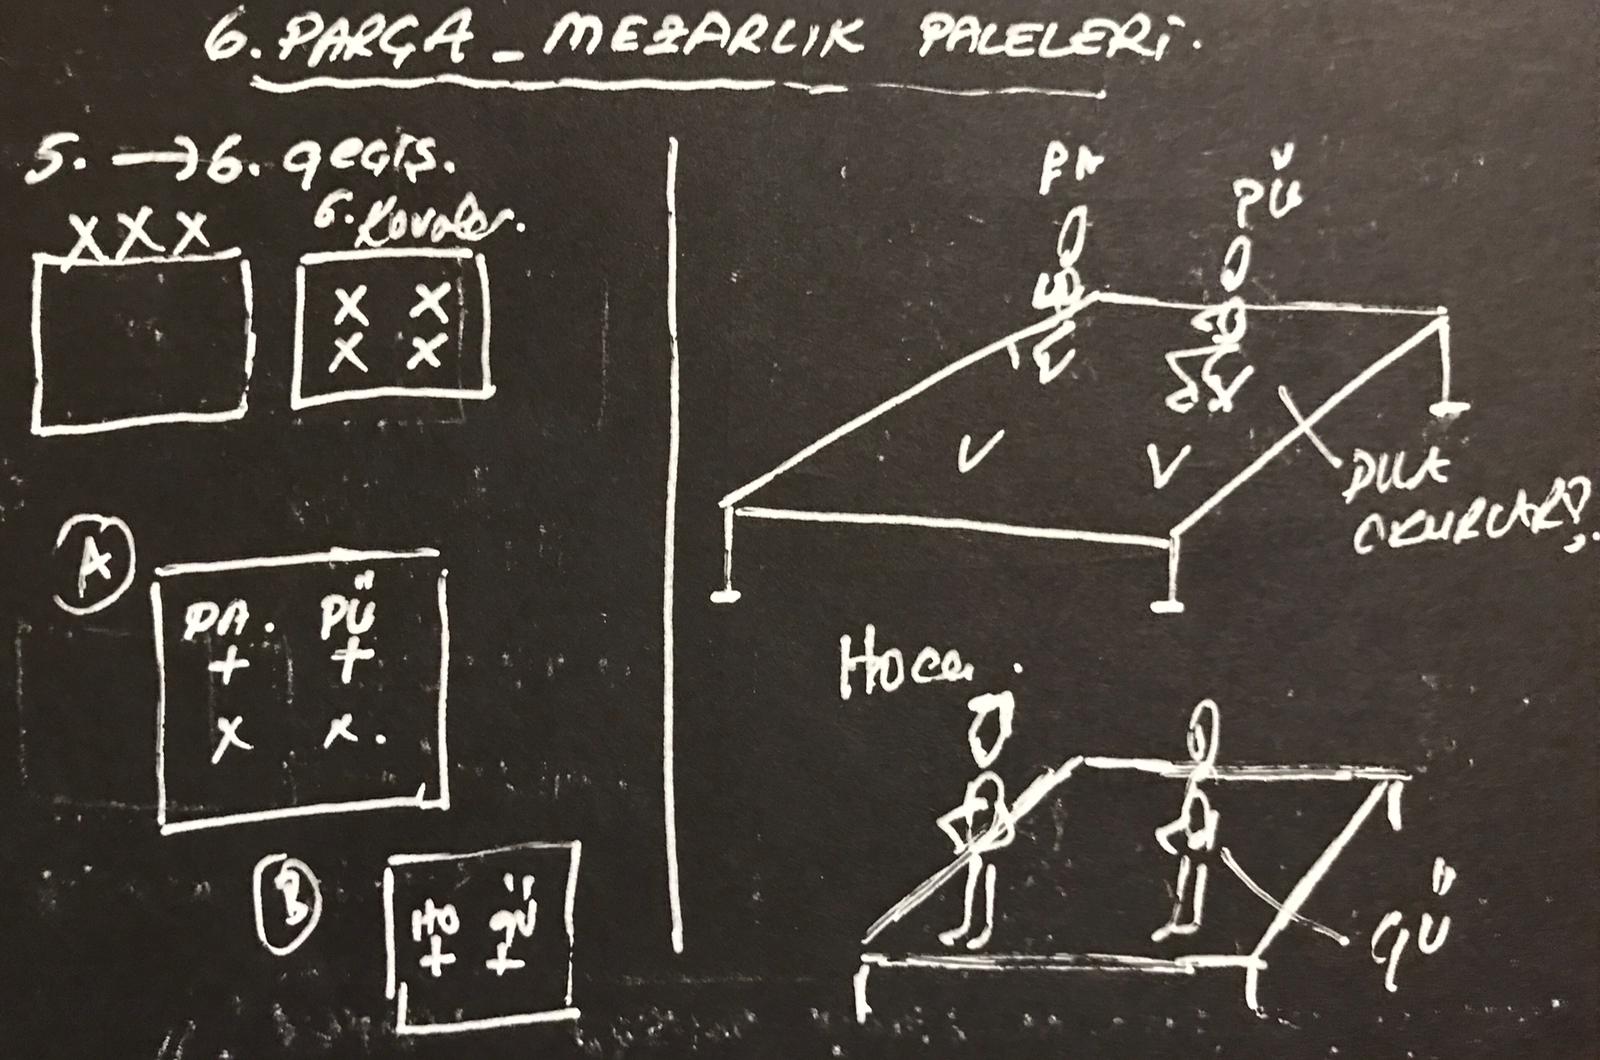 6. PARÇA - MEZARLIK PALELERİ.
5. → 6. geçiş.
X X X
6. Kovalar.
X X
X X
A
PA. PÜ
+ +
X X.
B
HO GÜ
+ +
PA
PÜ
V V
DUA
OKURLAR
Hoca.
GÜ